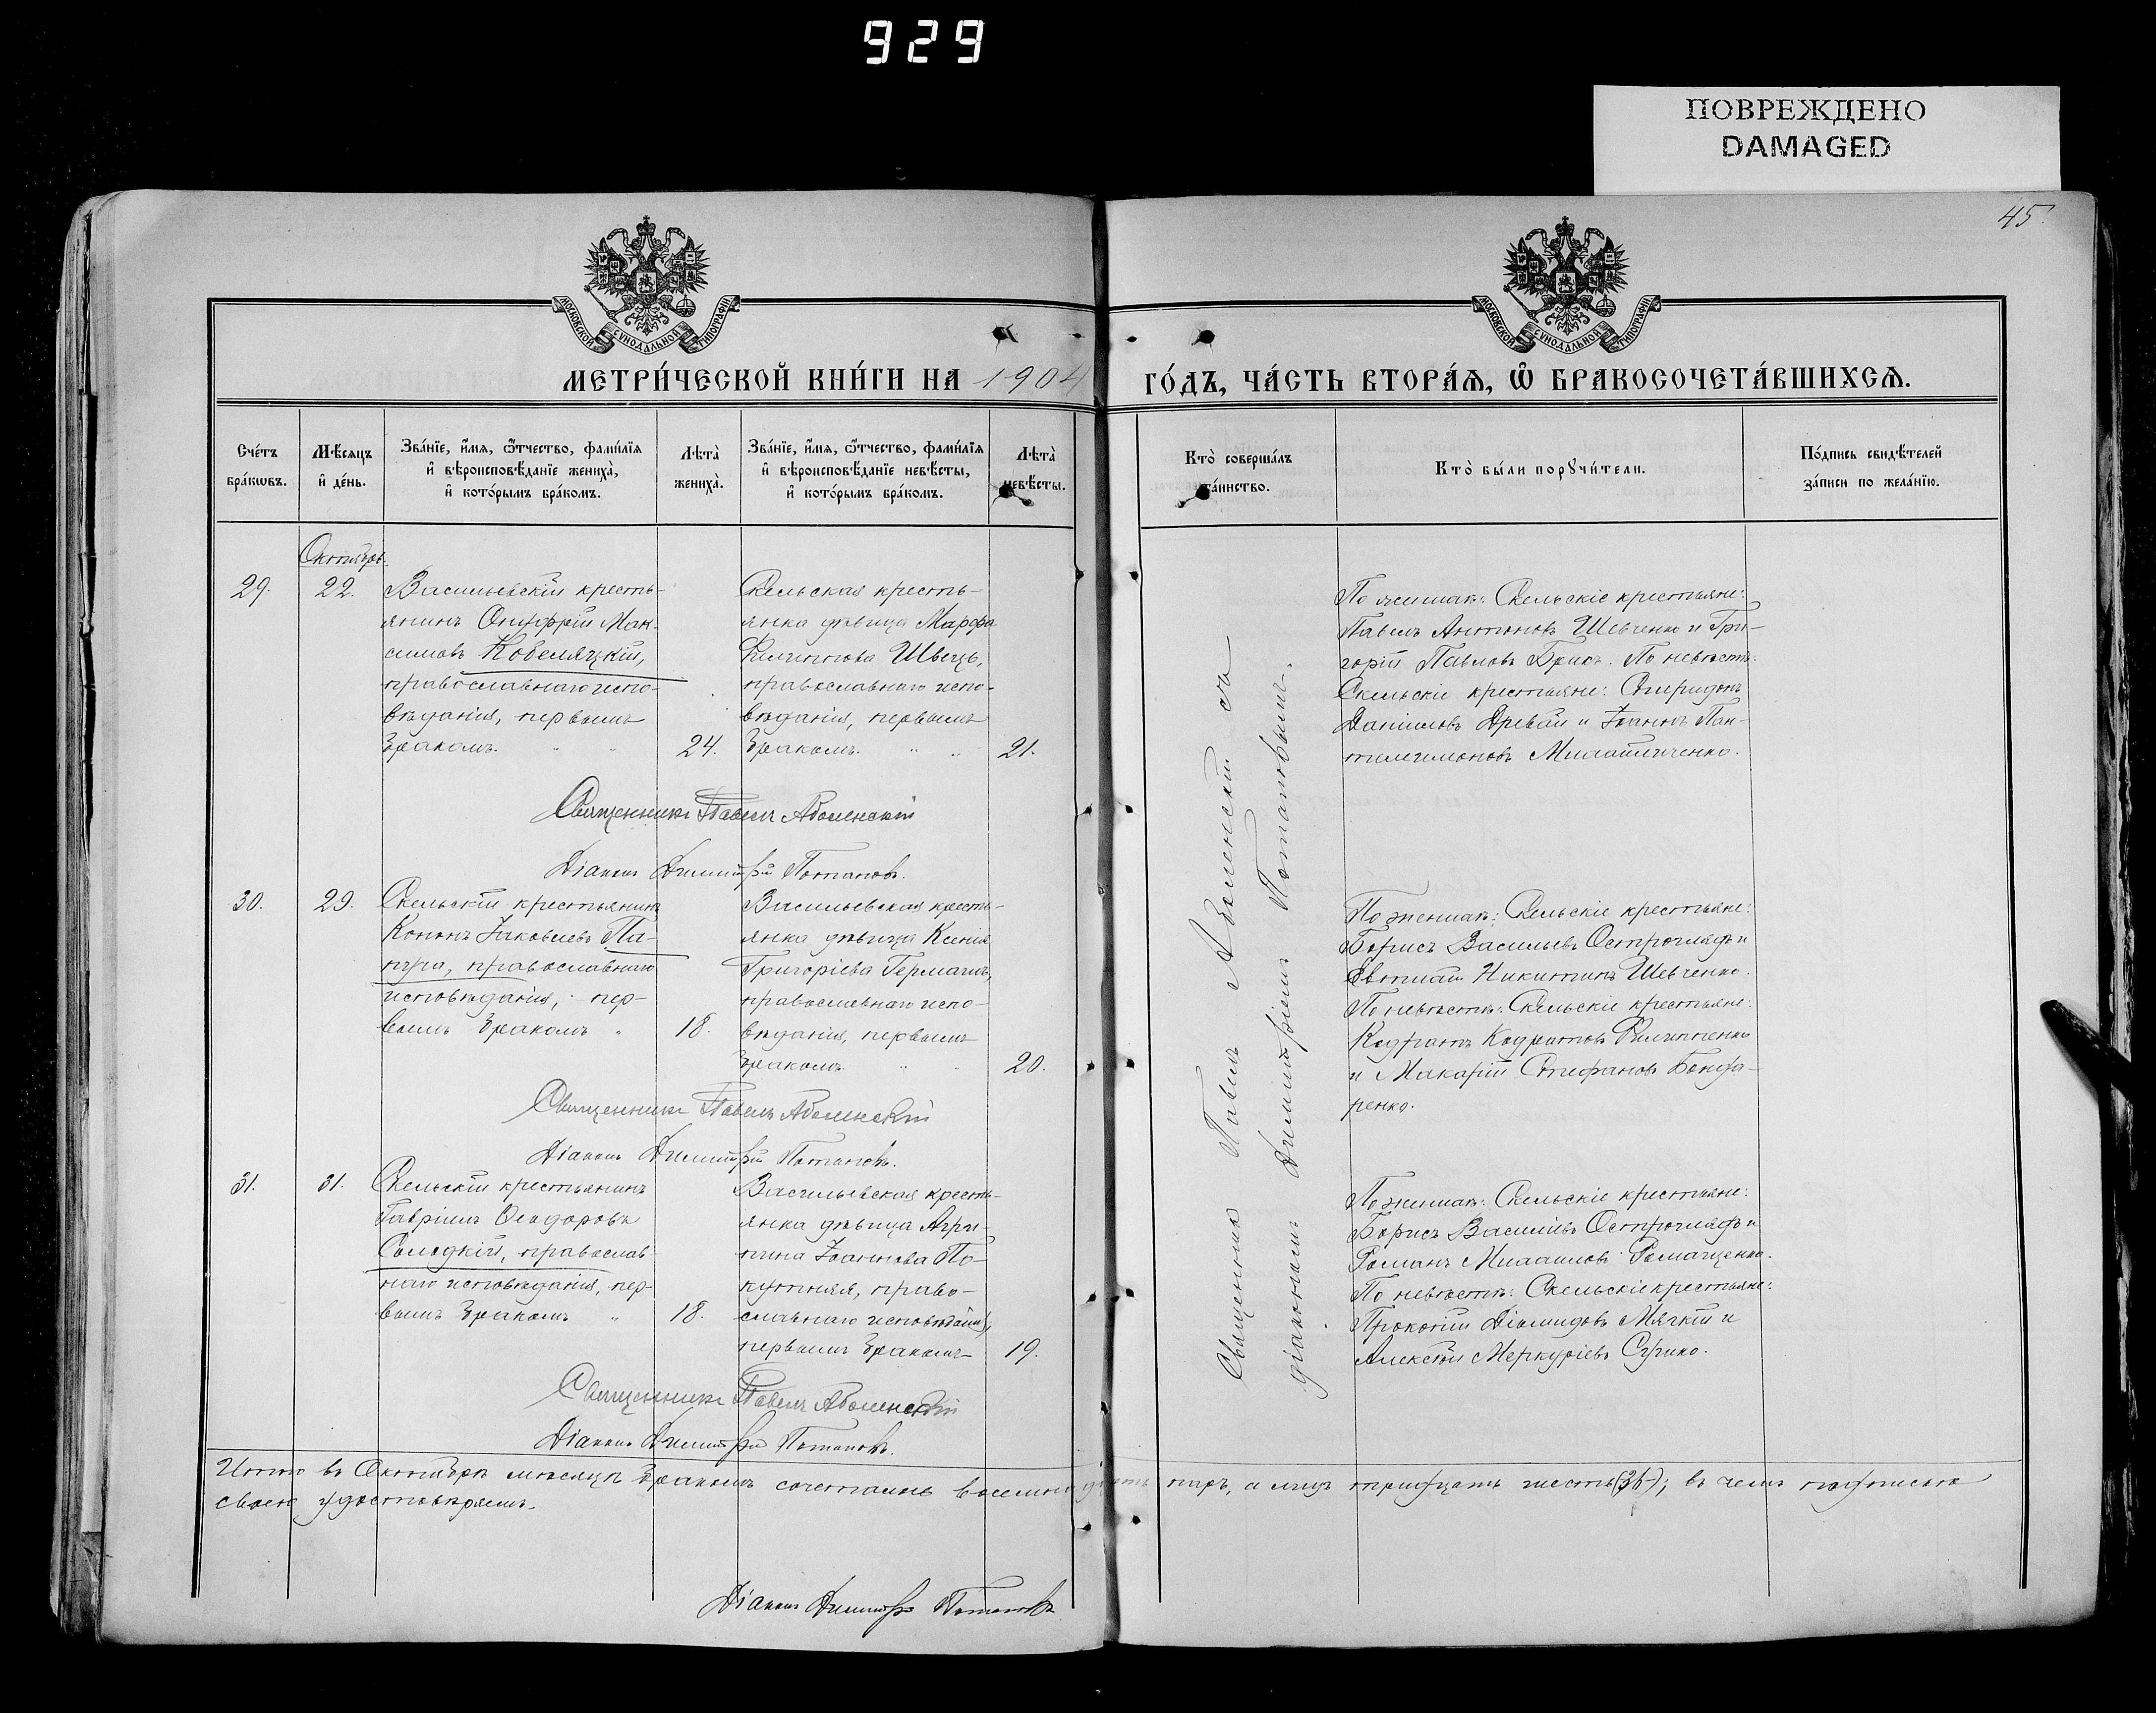 929
ПОВРЕЖДЕНО
DAMAGED
45.
МОСКОВСКОЙ СУНОДАЛЬНОЙ ТИПОГРАФІИ
МОСКОВСКОЙ СУНОДАЛЬНОЙ ТИПОГРАФІИ
МЕТРИ́ЧЕСКОЙ КНИ́ГИ НА 1904
ГО́ДЪ, ЧА́СТЬ ВТОРА́Я, Ѽ БРАКОСОЧЕТА́ВШИХСЯ.
Сче́тъ
бра́кѡвъ.
Мѣ́сяцъ
и҆ де́нь.
Зва́нїе, и҆́мя, ѻ҆́тчество, фами́лїя
и҆ вѣроисповѣ́данїе жениха̀,
и҆ кото́рымъ бра́комъ.
Лѣта̀
жениха̀.
Зва́нїе, и҆́мя, ѻ҆́тчество, фами́лїя
и҆ вѣроисповѣ́данїе невѣ́сты,
и҆ кото́рымъ бра́комъ.
Лѣта̀
невѣ́сты.
Кто̀ соверша́лъ
та́инство.
Кто̀ бы́ли порꙋчи́тели.
По́дпись свидѣ́телей
за́писи по жела́нїю.
Октябрь
29.
22.
Васильевскій кресть-
янинъ Онуфрій Мак-
симовъ Кобеляцкій,
православнаго испо-
вѣданія, первымъ
бракомъ. " "
24.
Скельская кресть-
янка дѣвица Марфа
Филиппова Швець,
православнаго испо-
вѣданія, первымъ
бракомъ. " "
21.
По женихѣ: Скельскіе крестьяне:
Павелъ Антоновъ Шевченко и Гри-
горій Павловъ Брюс. По невѣстѣ:
Скельскіе крестьяне: Спиридонъ
Даніиловъ Древаль и Іоаннъ Пан-
тилимоновъ
Священникъ Павелъ Аболенскій
Діаконъ Димитрій Потаповъ.
30.
29.
Скельскій крестьянинъ
Кононъ Іаковлевъ Па-
пуга, православнаго
исповѣданія, пер-
вымъ бракомъ "
18.
Васильевская кресть-
янка дѣвица Ксенія
Григоріева
православнаго испо-
вѣданія, первымъ
бракомъ. "
20.
По женихѣ: Скельскіе крестьяне:
Борисъ Васильевъ Остроглядъ и
Никитинъ Шевченко.
По невѣстѣ: Скельскіе крестьяне:
Кодратъ Кодратовъ Филиппенко
и Макарій Стефановъ Бонда-
ренко.
Священникъ Павелъ Аболенскій
Діаконъ Димитрій Потаповъ.
31.
31.
Скельскій крестьянинъ
Гавріилъ Ѳеодоровъ
Солодкій, православ-
наго исповѣданія, пер-
вымъ бракомъ "
18.
Васильевская кресть-
янка дѣвица Агри-
пина Іоаннова По-
кутняя, право-
славнаго исповѣданія,
первымъ бракомъ
19.
По женихѣ: Скельскіе крестьяне:
Борисъ Василіевъ Остроглядъ и
Романъ Михаиловъ Ромащенко.
По невѣстѣ: Скельскіе крестьяне:
Прокопій Діомидовъ Мягкій и
Алексѣй Меркуріевъ Сѣрико.
Священникъ Павелъ Аболенскій
Діаконъ Димитрій Потаповъ.
Священникъ Павелъ Аболенскій съ
діакономъ Димитріемъ Потаповымъ.
Итого въ Октябрѣ мѣсяцѣ бракомъ сочетались восемнадцать паръ, а лицъ тридцать шесть (36); въ чемъ подписью
своею удостовѣряемъ.
Діаконъ Димитрій Потаповъ